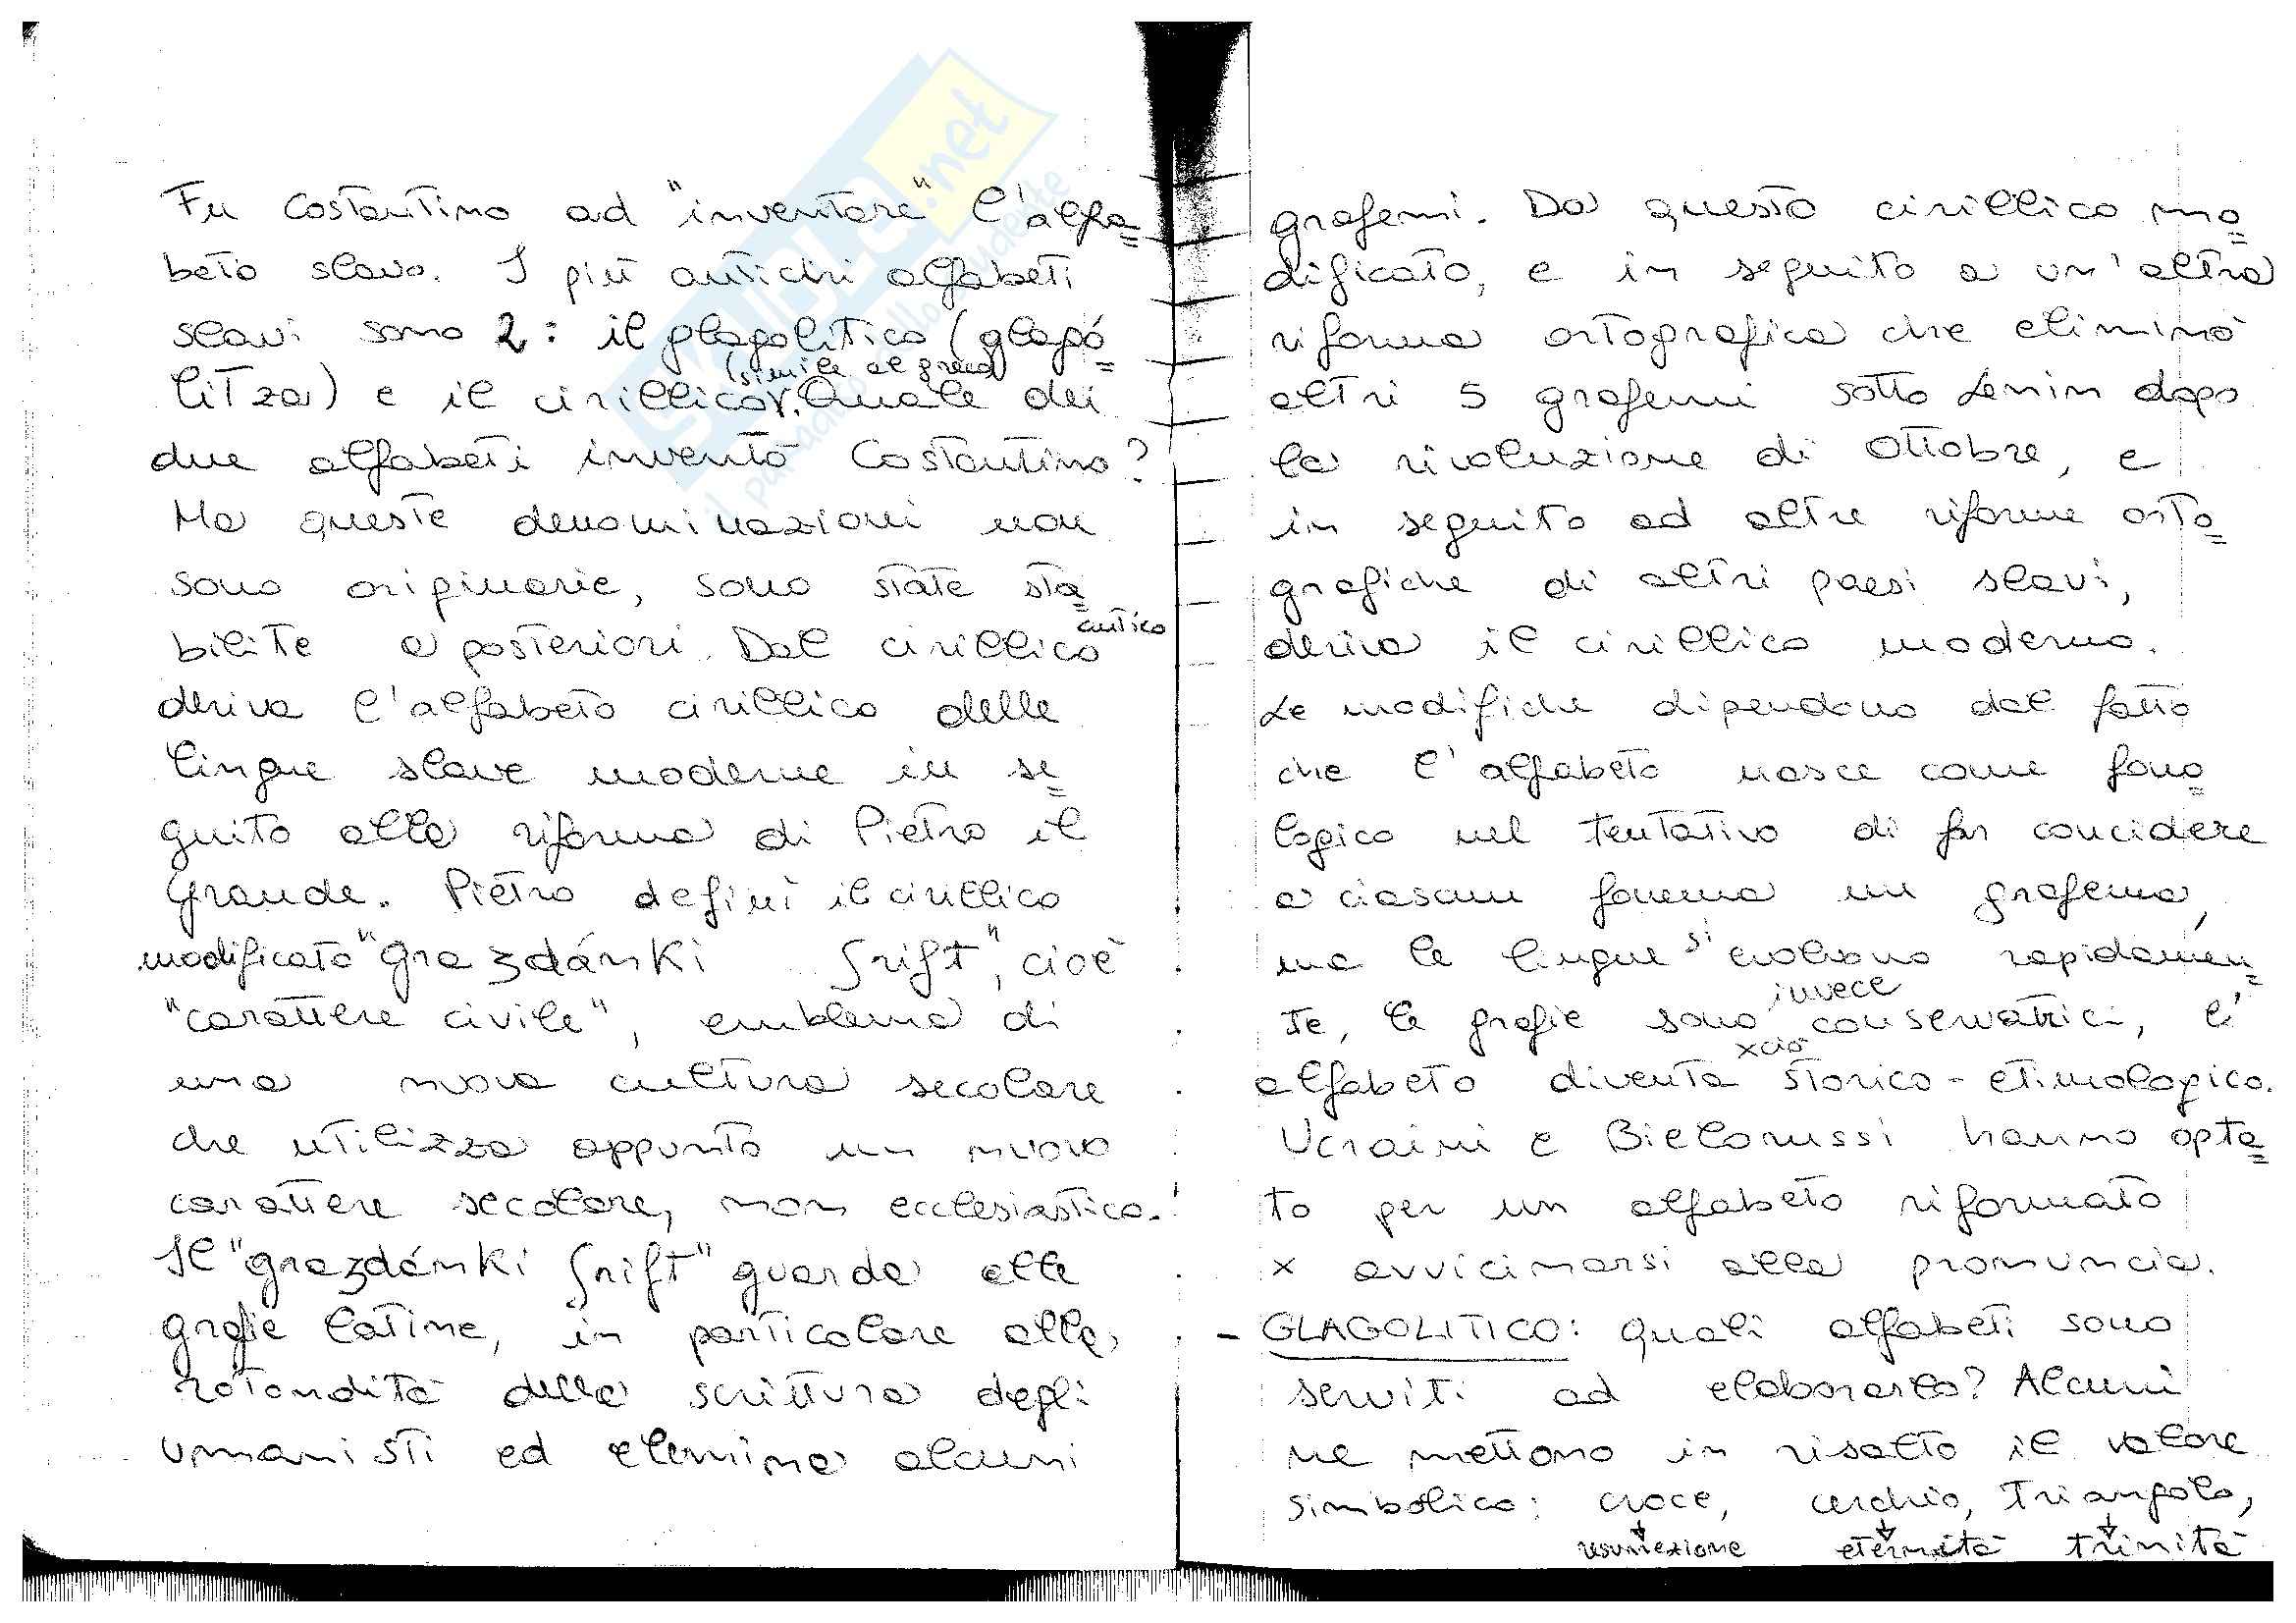 Fu Costantino ad "inventare" l'alfa=
beto slavo. I più antichi alfabeti
slavi sono 2: il glagolitico (glagó=
litza) e il cirillico (simile al greco). Quale dei
due alfabeti inventò Costantino?
Ma queste denominazioni non
sono originarie, sono state sta=
bilite a posteriori. Dal cirillico antico
deriva l'alfabeto cirillico delle
lingue slave moderne in se=
guito alla riforma di Pietro il
Grande. Pietro definì il cirillico
modificato "grazdánki ʃrift", cioè
"carattere civile", emblema di
una nuova cultura secolare
che utilizza appunto un nuovo
carattere secolare, non ecclesiastico.
Il "grazdánki ʃrift" guarda alle
grafie latine, in particolare alla
rotondità della scrittura degli
umanisti ed elimina alcuni
grafemi. Da questo cirillico mo=
dificato, e in seguito a un'altra
riforma ortografica che eliminò
altri 5 grafemi sotto Lenin dopo
la rivoluzione di Ottobre, e
in seguito ad altre riforme orto=
grafiche di altri paesi slavi,
deriva il cirillico moderno.
Le modifiche dipendono dal fatto
che l'alfabeto nasce come fono=
logico nel tentativo di far concidere
a ciascun fonema un grafema,
ma le lingue si evolvono rapidamen=
te, le grafie sono invece conservatrici, l'
alfabeto diventa xciò storico-etimologico.
Ucraini e Bielorussi hanno opta=
to per un alfabeto riformato
x avvicinarsi alla pronuncia.
- GLAGOLITICO: quali alfabeti sono
serviti ad elaborarlo? Alcuni
ne mettono in risalto il valore
simbolico: croce, cerchio, triangolo,
resurrezione eternità trinità